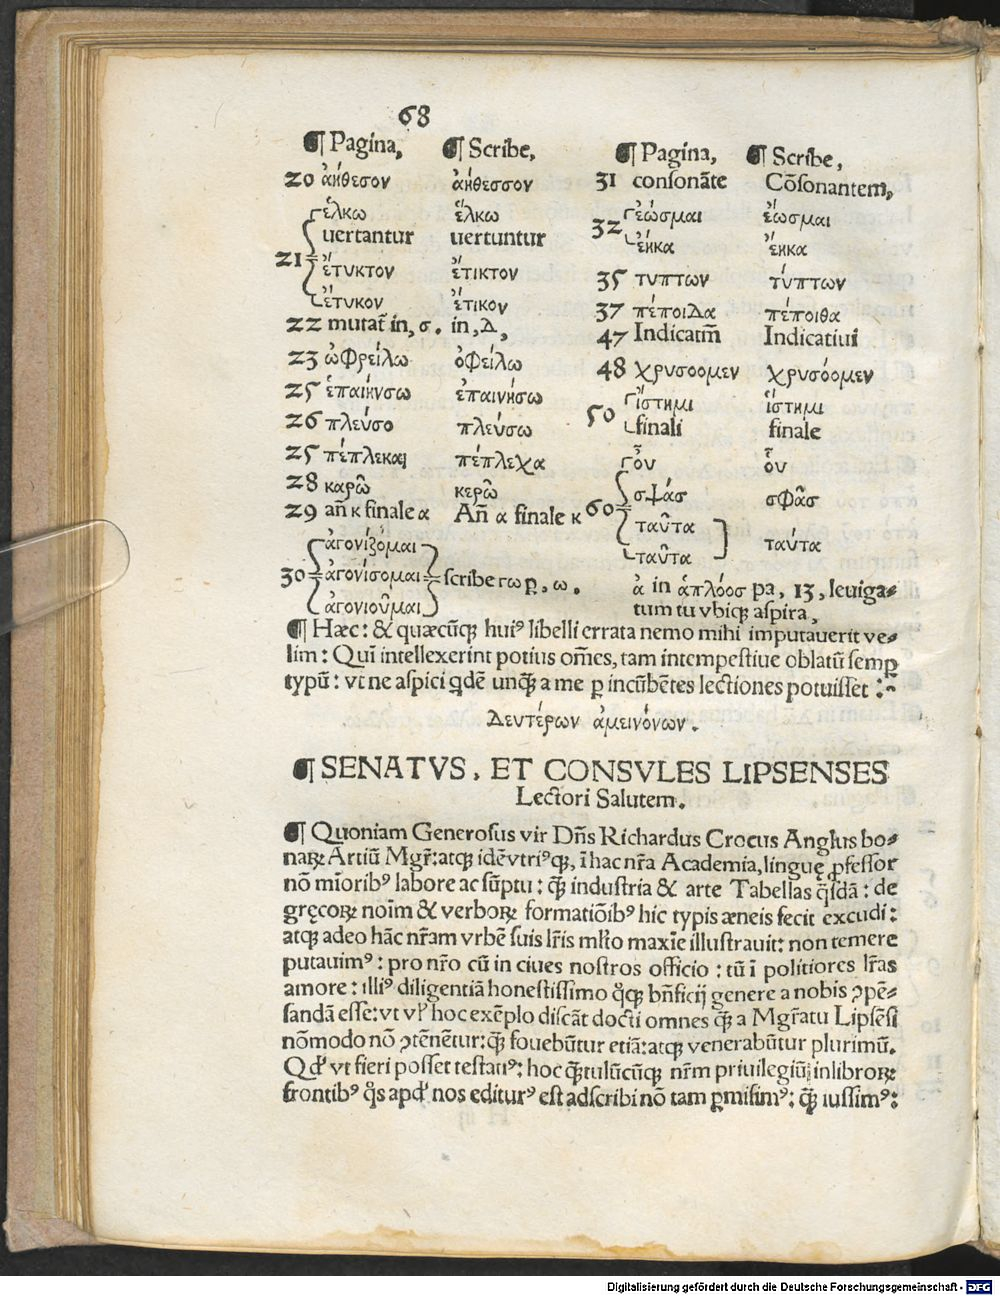 68
¶ Pagina, ¶ Scribe,
20 ἀήθεσον ἀήθεσσον
ἑλκω ἕλκω
uertantur uertuntur
21 ἔτυκτον ἔτικτον
ἔτυκον ἔτικον
22 mutat̃ in, σ. in, Δ,
23 ὠφρείλω ὀφείλω
25 ἑπαίηνσω ἐπαινήσω
26 πλεύσο πλεύσω
25 πέπλεκαι πέπλεχα
28 καρῶ κερῶ
29 añ κ finale α Añ α finale κ
ἀγονίζομαι
30 ἀγονίσομαι scribe γω ꝑ, ω.
ἀγονιοῦμαι
¶ Pagina, ¶ Scribe,
31 consonãte Cõsonantem,
32 ἐώσμαι ἔωσμαι
ἐήκα ἔηκα
35 τυπτων τύπτων
37 πέποιδα πέποιθα
47 Indicatim̃ Indicatiui
48 χρυσοομεν χρυσόομεν
50 ἵστημι ἵστημι
finali finale
ὗου ὗ
60 σψάσ σφᾶσ
ταῦτα ταύτα
ταῦτα
ἀ in ἁπλόοσ pa, 13, leuiga⸗
tum tu vbiqꝫ aspira,
¶ Hæc: & quæcũqꝫ huiꝰ libelli errata nemo mihi imputauerit ve⸗
lim: Quĩ intellexerint potius om̃es, tam intempestiue oblatũ semꝑ
typũ: vt ne aspici qdẽ unqꝫ a me ꝑ incũbẽtes lectiones potuisset:
Δευτέρων ἀμεινόνων.
¶ SENATVS, ET CONSVLES LIPSENSES
Lectori Salutem.
¶ Quoniam Generosus vir Dñs Richardus Crocus Anglus bo⸗
naꝝ Artiũ Mgr̃:atqꝫ idẽvtriꝰqꝫ, ĩ hac nr̃a Academia, linguę ꝓfessor
nõ mĩoribꝰ labore ac sũptu: qꝫ̃ industria & arte Tabellas q̃sdã: de
gręcoꝝ noĩm & verboꝝ formatiõibꝰ hic typis æneis fecit excudi:
atqꝫ adeo hãc nr̃am vrbẽ suis lr̃is ml̃to maxĩe illustrauit: non temere
putauimꝰ: pro nr̃o cũ in ciues nostros officio: tũ ĩ politiores lr̃as
amore: illiꝰ diligentiã honestissimo q̊qꝫ bñficij genere a nobis ꝯpẽ⸗
sandã esse:vt vl̃ hoc exẽplo discãt docti omnes qꝫ̃ a Mgr̃atu Lipsẽsi
nõmodo nõ ꝯtẽnẽtur:qꝫ̃ fouebũtur etiã:atqꝫ venerabũtur plurimũ.
Qd̓ vt fieri posset testatiꝰ: hoc qꝫ̃tulũcũqꝫ nr̃m priuilegiũ inlibroꝝ
frontibꝰ q̊s apd̓ nos editurꝰ est adscribi nõ tam ꝑmisimꝰ: qꝫ̃ iussimꝰ:
Digitalisierung gefördert durch die Deutsche Forschungsgemeinschaft - DFG